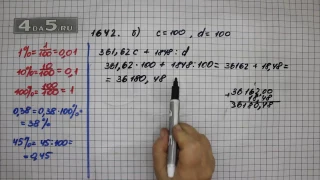 4DA5.RU
1642. б) c = 100, d = 100
361,62c + 1848 : d
361,62 · 100 + 1848 : 100 = 36162 + 18,48 =
= 36180,48
+ 36162,00
18,48
36180,48
1% = 1/100 = 0,01
10% = 10/100 = 0,1
100% = 100/100 = 1
0,38 = 0,38 · 100% =
= 38%
45% = 45 : 100 =
= 0,45